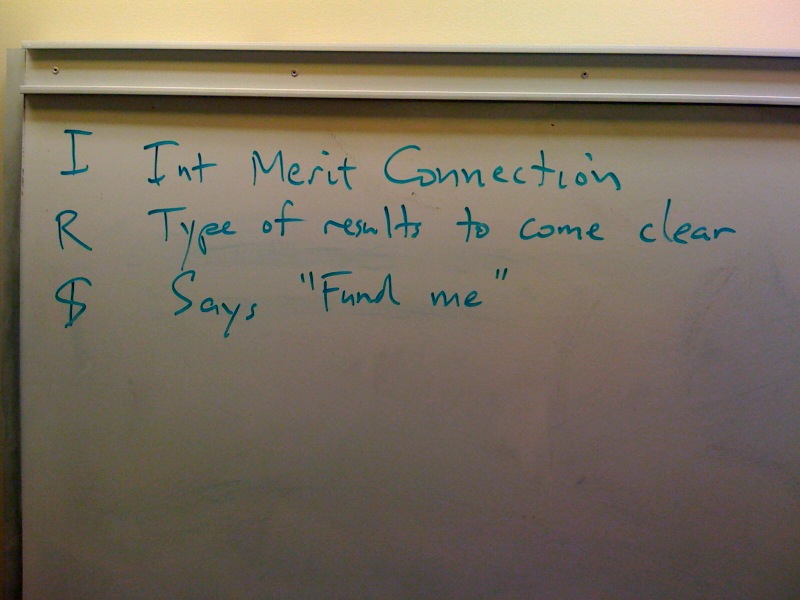 I Int Merit Connection
R Type of results to come clear
$ Says "Fund me"